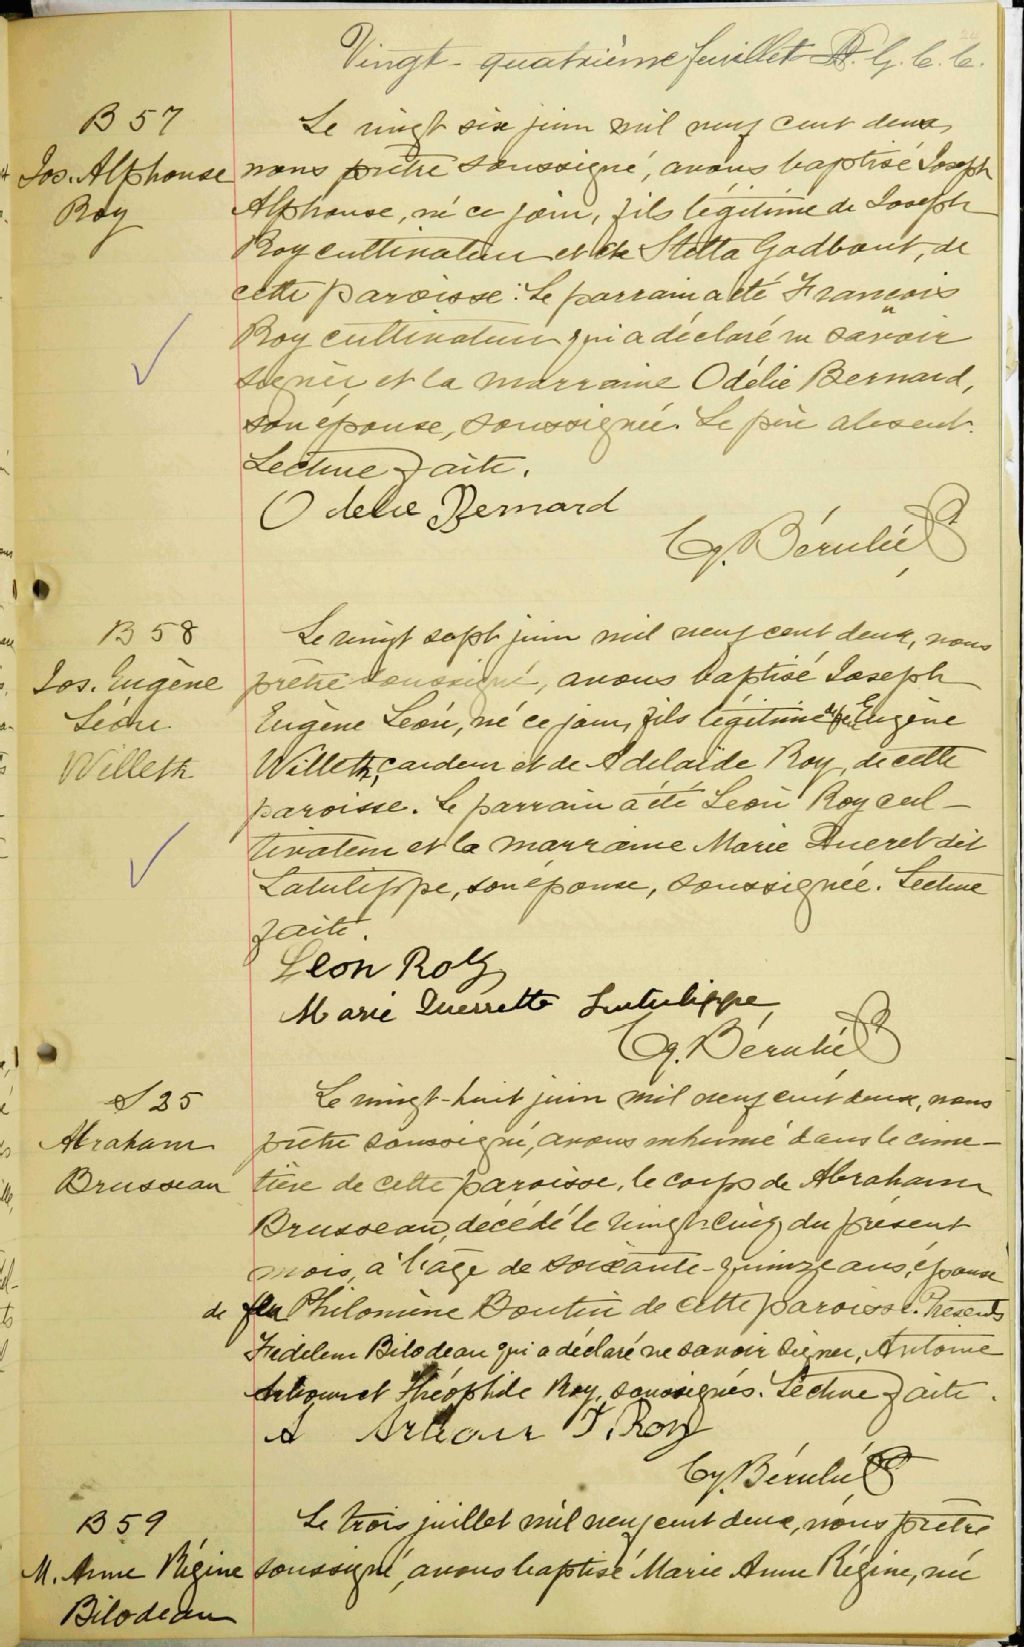 Vingt-quatrième feuillet G. C. C.
B 57
Jos. Alphonse
Roy
Le vingt six juin mil neuf cent deux,
nous prêtre soussigné, avons baptisé Joseph
Alphonse, né ce jour, fils légitime de Joseph
Roy cultivateur et de Stella Godbout, de
cette paroisse. Le parrain a été François
Roy cultivateur qui a déclaré ne savoir
signer et la marraine Odélie Bernard,
son épouse, soussignée. Le père absent.
Lecture faite.
Odelie Bernard
B 58
Jos. Eugène
Léon
Willett
Le vingt sept juin mil neuf cent deux, nous
prêtre soussigné, avons baptisé Joseph
Eugène Léon, né ce jour, fils légitime de Eugène
Willett, cardeur et de Adélaide Roy, de cette
paroisse. Le parrain a été Léon Roy cul-
tivateur et la marraine Marie Queret dit
Latulippe, son épouse, soussignée. Lecture
faite.
Léon Roy
Marie Querrette Latulippe
S 25
Abraham
Brusseau
Le vingt-huit juin mil neuf cent deux, nous
prêtre soussigné, avons inhumé dans le cime-
tière de cette paroisse, le corps de Abraham
Brusseau, décédé le vingt-cinq du présent
mois, à l'âge de soixante-quinze ans, époux
de feu Philomène Boutin de cette paroisse. Présents
Fidèle Bilodeau qui a déclaré ne savoir signer, Antoine
Arbour et Théophile Roy, soussignés. Lecture faite.
A Arbour T. Roy
B 59
M. Anne Régine
Bilodeau
Le trois juillet mil neuf cent deux, nous prêtre
soussigné, avons baptisé Marie Anne Régine, née